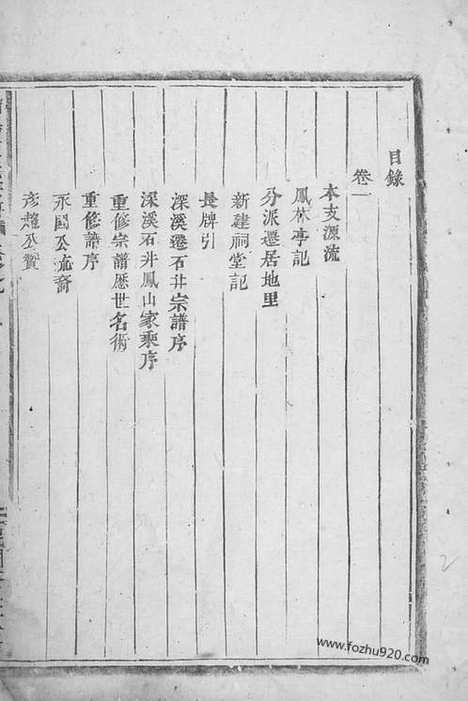 目錄
卷一
本支源流
鳳林亭記
分派遷居地里
新建祠堂記
長牌引
深溪遷石井宗譜序
深溪石井鳳山家乘序
重修宗譜歷世名術
重修譜序
永國公流裔
彥超公贊
www.fozhu920.com
2